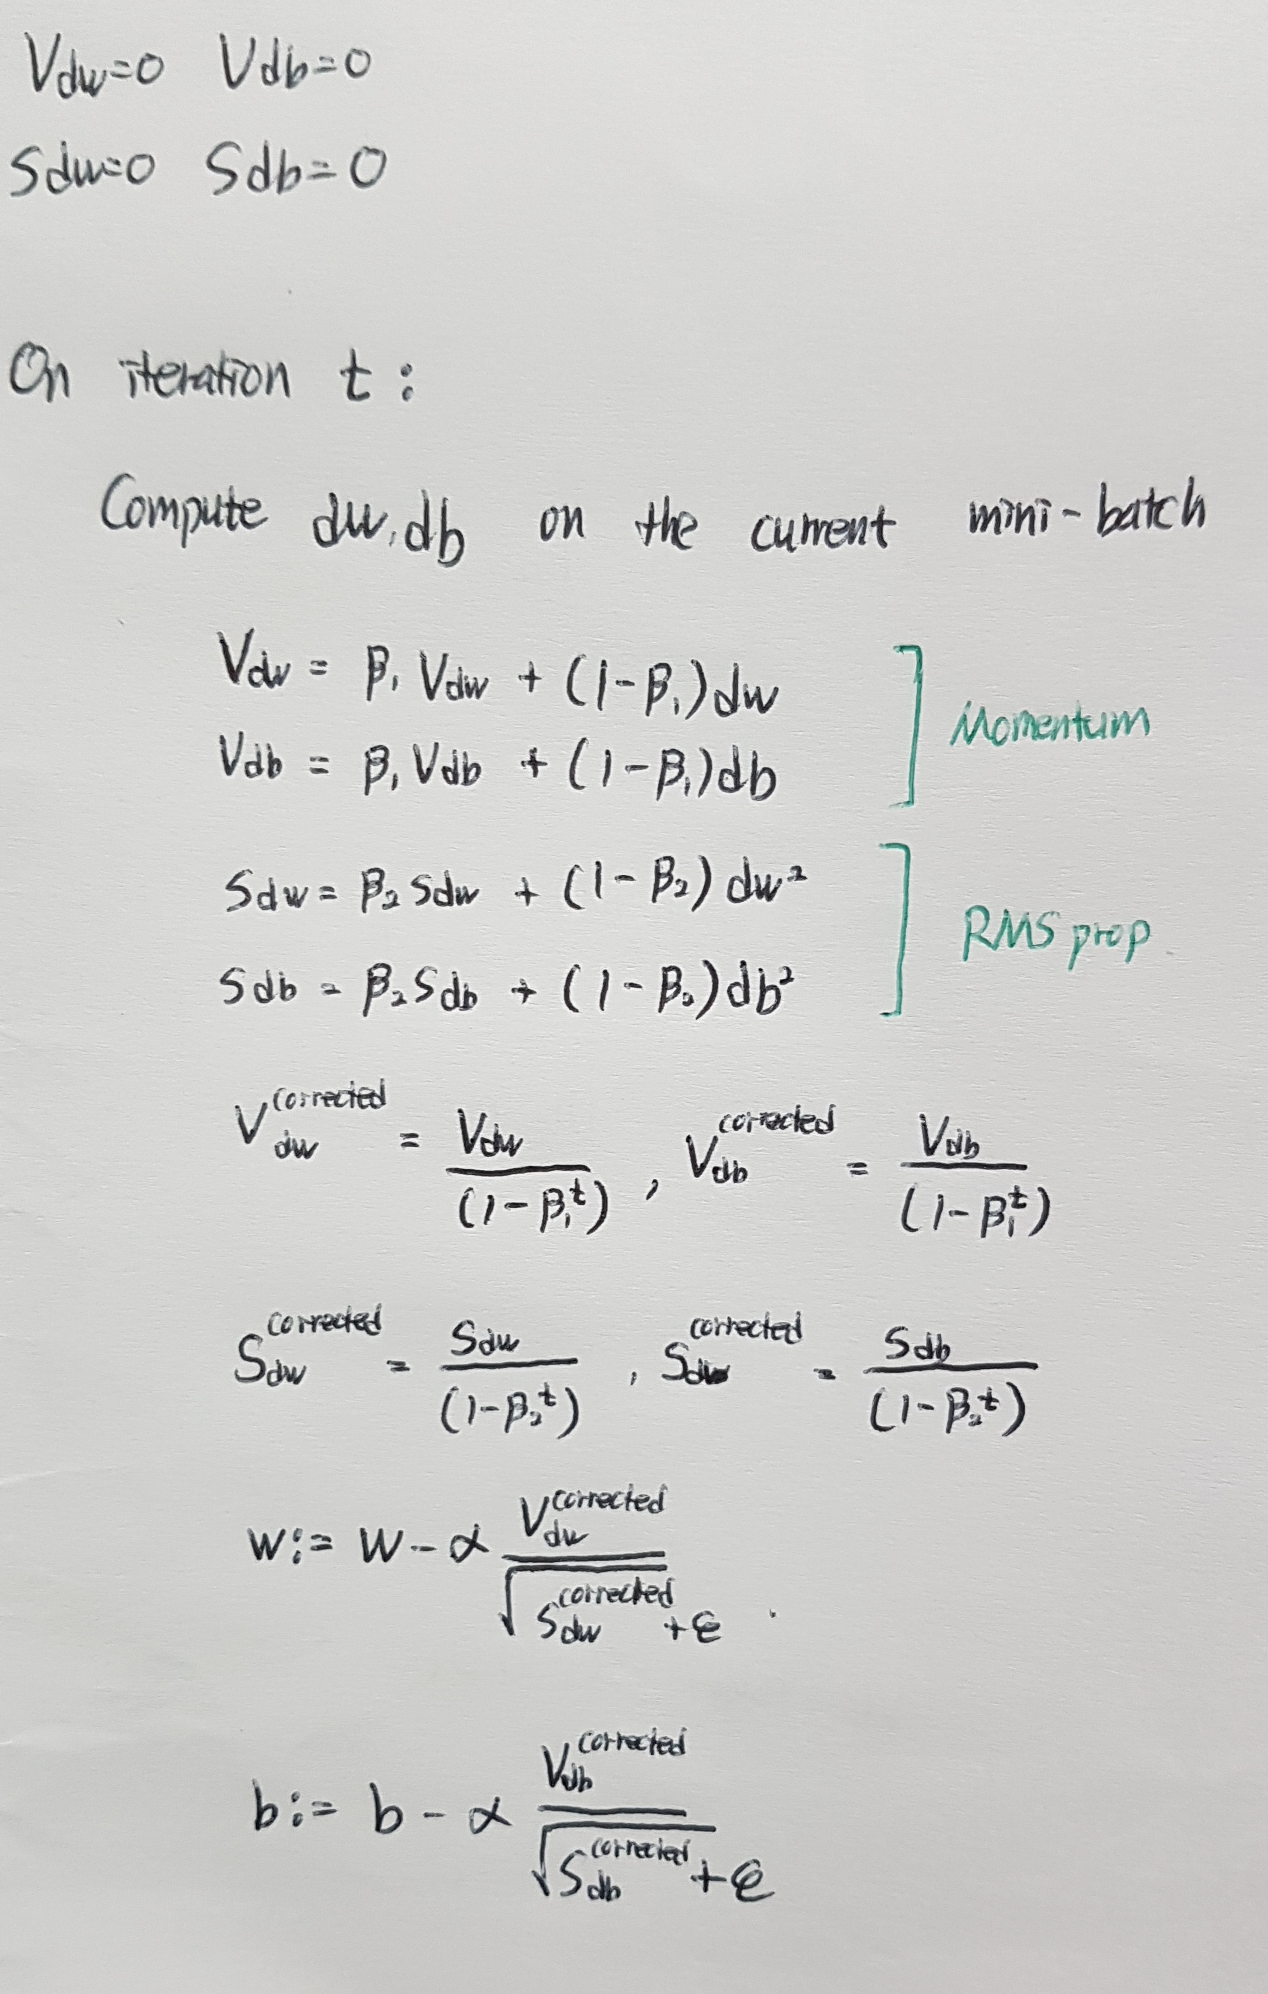 Vdw=0 Vdb=0
Sdw=0 Sdb=0
On iteration t:
Compute dw, db on the current mini-batch
Vdw = β₁ Vdw + (1-β₁)dw
Vdb = β₁ Vdb + (1-β₁)db
Momentum
Sdw = β₂ Sdw + (1-β₂) dw²
Sdb = β₂ Sdb + (1-β₂) db²
RMS prop
V_dw^corrected = Vdw / (1-β₁^t) , V_db^corrected = Vdb / (1-β₁^t)
S_dw^corrected = Sdw / (1-β₂^t) , S_db^corrected = Sdb / (1-β₂^t)
w := w - α V_dw^corrected / √S_dw^corrected + ε
b := b - α V_db^corrected / √S_db^corrected + ε